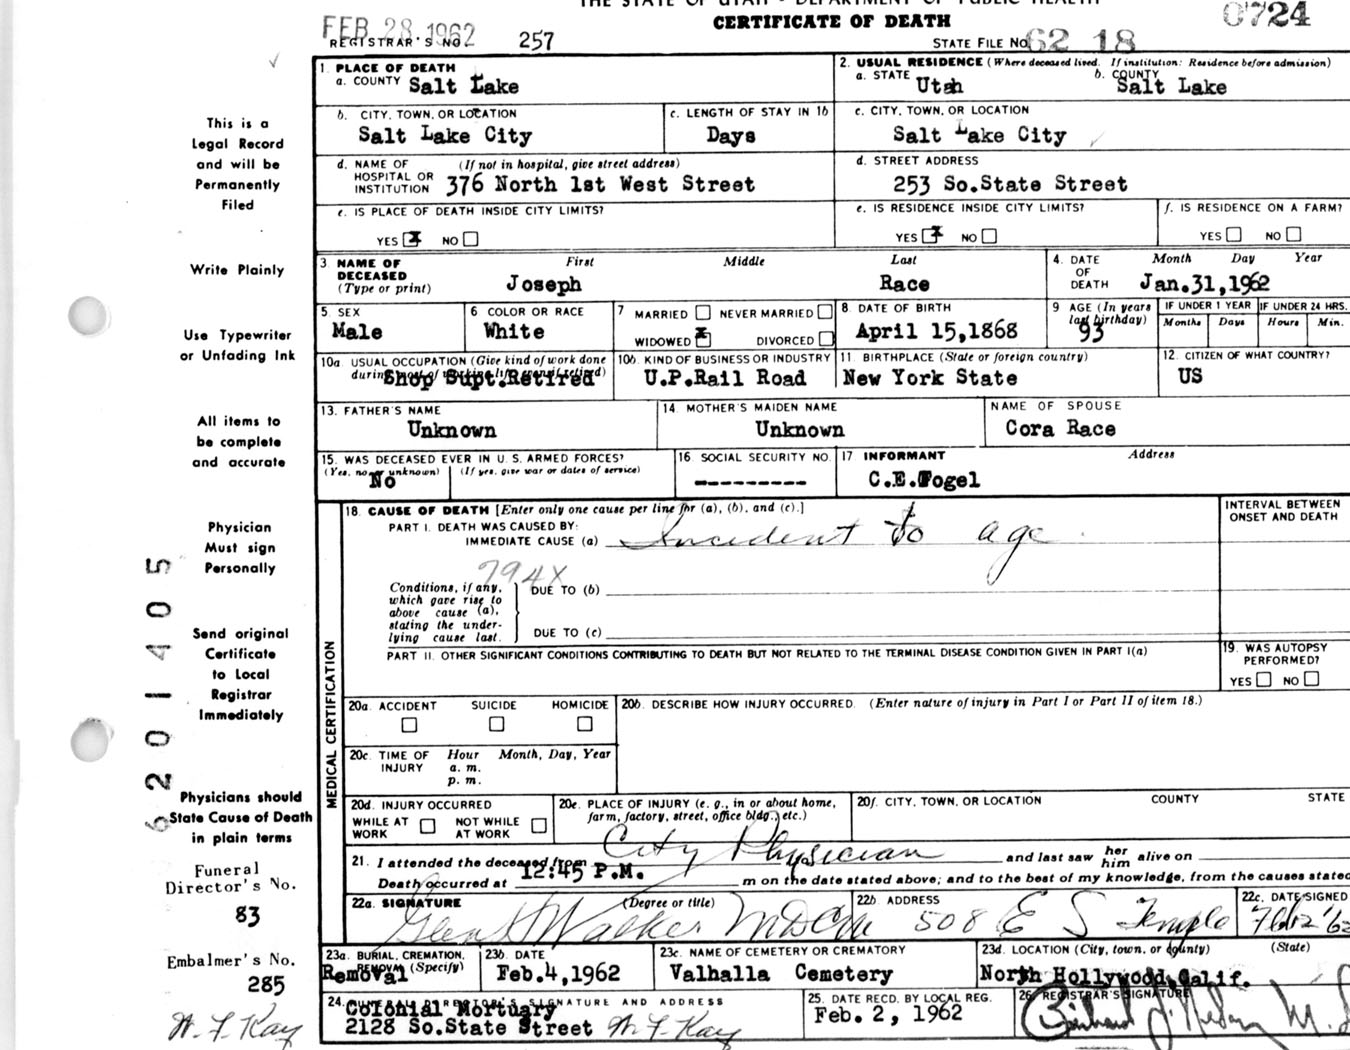 THE STATE OF UTAH - DEPARTMENT OF PUBLIC HEALTH
CERTIFICATE OF DEATH
0724
FEB 28 1962
REGISTRAR'S NO. 257
STATE FILE NO. 62 18
1. PLACE OF DEATH
a. COUNTY Salt Lake
2. USUAL RESIDENCE (Where deceased lived. If institution: Residence before admission)
a. STATE Utah b. COUNTY Salt Lake
b. CITY, TOWN, OR LOCATION
Salt Lake City
c. LENGTH OF STAY IN 1b
Days
c. CITY, TOWN, OR LOCATION
Salt Lake City
d. NAME OF HOSPITAL OR INSTITUTION (If not in hospital, give street address)
376 North 1st West Street
d. STREET ADDRESS
253 So.State Street
e. IS PLACE OF DEATH INSIDE CITY LIMITS?
YES X NO
e. IS RESIDENCE INSIDE CITY LIMITS?
YES X NO
f. IS RESIDENCE ON A FARM?
YES NO
3. NAME OF DECEASED (Type or print)
First Middle Last
Joseph Race
4. DATE OF DEATH
Month Day Year
Jan.31,1962
5. SEX
Male
6. COLOR OR RACE
White
7 MARRIED NEVER MARRIED
WIDOWED X DIVORCED
8. DATE OF BIRTH
April 15,1868
9. AGE (In years last birthday)
93
IF UNDER 1 YEAR IF UNDER 24 HRS.
Months Days Hours Min.
10a. USUAL OCCUPATION (Give kind of work done during most of working life, even if retired)
Shop Supt.Retired
10b. KIND OF BUSINESS OR INDUSTRY
U.P.Rail Road
11. BIRTHPLACE (State or foreign country)
New York State
12. CITIZEN OF WHAT COUNTRY?
US
13. FATHER'S NAME
Unknown
14. MOTHER'S MAIDEN NAME
Unknown
NAME OF SPOUSE
Cora Race
15. WAS DECEASED EVER IN U.S. ARMED FORCES?
(Yes, no or unknown) (If yes, give war or dates of service)
No
16. SOCIAL SECURITY NO.
---------
17. INFORMANT Address
C.E.Fogel
18. CAUSE OF DEATH [Enter only one cause per line for (a), (b), and (c).]
INTERVAL BETWEEN ONSET AND DEATH
PART I. DEATH WAS CAUSED BY:
IMMEDIATE CAUSE (a) Incident to age
794X
Conditions, if any, which gave rise to above cause (a), stating the underlying cause last.
DUE TO (b)
DUE TO (c)
PART II. OTHER SIGNIFICANT CONDITIONS CONTRIBUTING TO DEATH BUT NOT RELATED TO THE TERMINAL DISEASE CONDITION GIVEN IN PART I(a)
19. WAS AUTOPSY PERFORMED?
YES NO
MEDICAL CERTIFICATION
20a. ACCIDENT SUICIDE HOMICIDE
20b. DESCRIBE HOW INJURY OCCURRED. (Enter nature of injury in Part I or Part II of item 18.)
20c. TIME OF INJURY
Hour Month, Day, Year
a. m.
p. m.
20d. INJURY OCCURRED
WHILE AT WORK NOT WHILE AT WORK
20e. PLACE OF INJURY (e. g., in or about home, farm, factory, street, office bldg., etc.)
20f. CITY, TOWN, OR LOCATION COUNTY STATE
21. I attended the deceased from City Physician and last saw her him alive on
Death occurred at 12:45 P.M. m on the date stated above; and to the best of my knowledge, from the causes stated
22a. SIGNATURE (Degree or title)
Glen Walker MDCM
22b. ADDRESS
508 E S Temple
22c. DATE SIGNED
Feb 2 '62
23a. BURIAL, CREMATION, REMOVAL (Specify)
Removal
23b. DATE
Feb.4,1962
23c. NAME OF CEMETERY OR CREMATORY
Valhalla Cemetery
23d. LOCATION (City, town, or county) (State)
North Hollywood,Calif.
24. FUNERAL DIRECTOR'S SIGNATURE AND ADDRESS
Colonial Mortuary
2128 So.State Street W. F. Kay
25. DATE RECD. BY LOCAL REG.
Feb. 2, 1962
26. REGISTRAR'S SIGNATURE
This is a
Legal Record
and will be
Permanently
Filed
Write Plainly
Use Typewriter
or Unfading Ink
All items to
be complete
and accurate
Physician
Must sign
Personally
Send original
Certificate
to Local
Registrar
Immediately
Physicians should
State Cause of Death
in plain terms
Funeral
Director's No.
83
Embalmer's No.
285
W. F. Kay
6201405